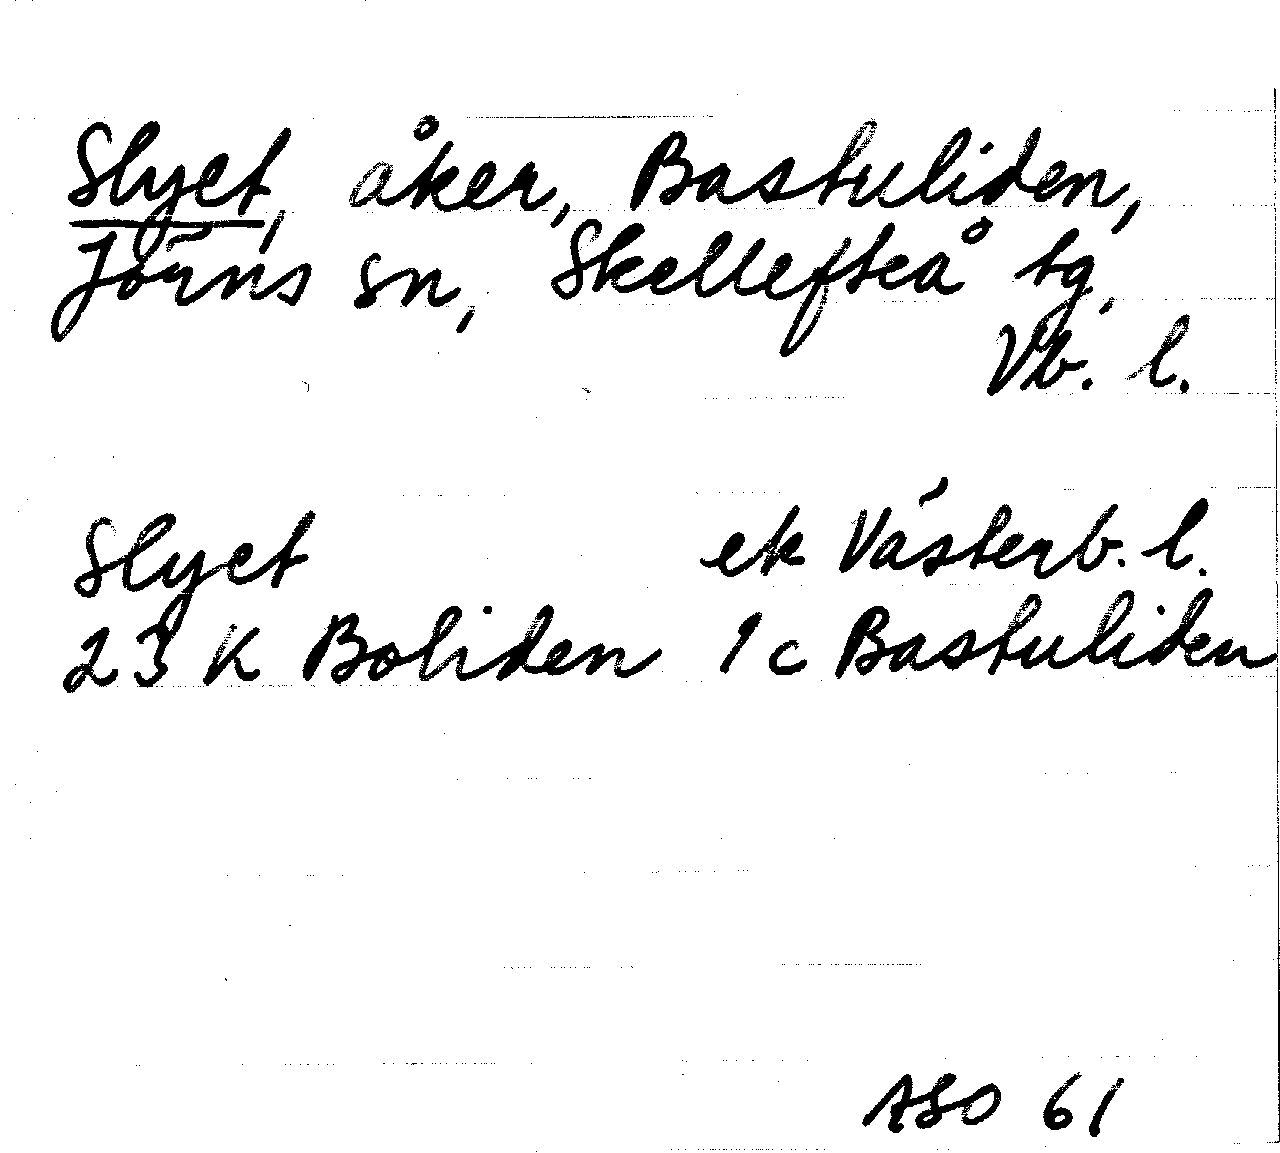 Slyet, åker, Bastuliden,
Jörns sn, Skellefteå tg,
Vb. l.
Slyet ek Västerb. l.
23 K Boliden 1 c Bastuliden
ASO 61